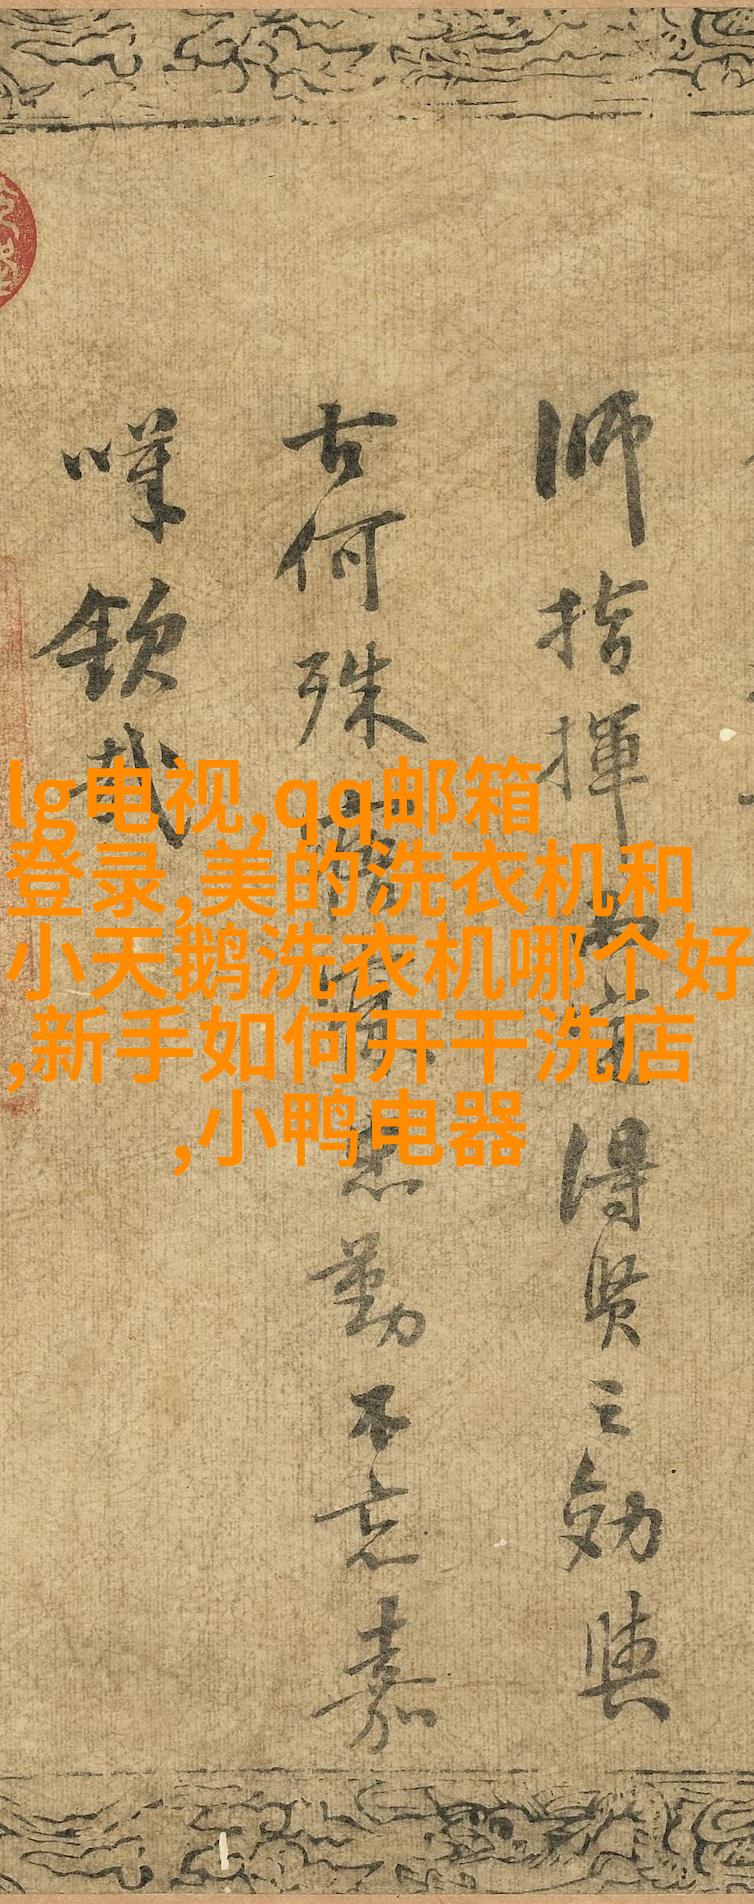 師指揮而定得賢之效與
古何殊 忠勤不忘嘉
嘆欽哉
lg电视,qq邮箱
登录,美的洗衣机和
小天鹅洗衣机哪个好
,新手如何开干洗店
,小鸭电器